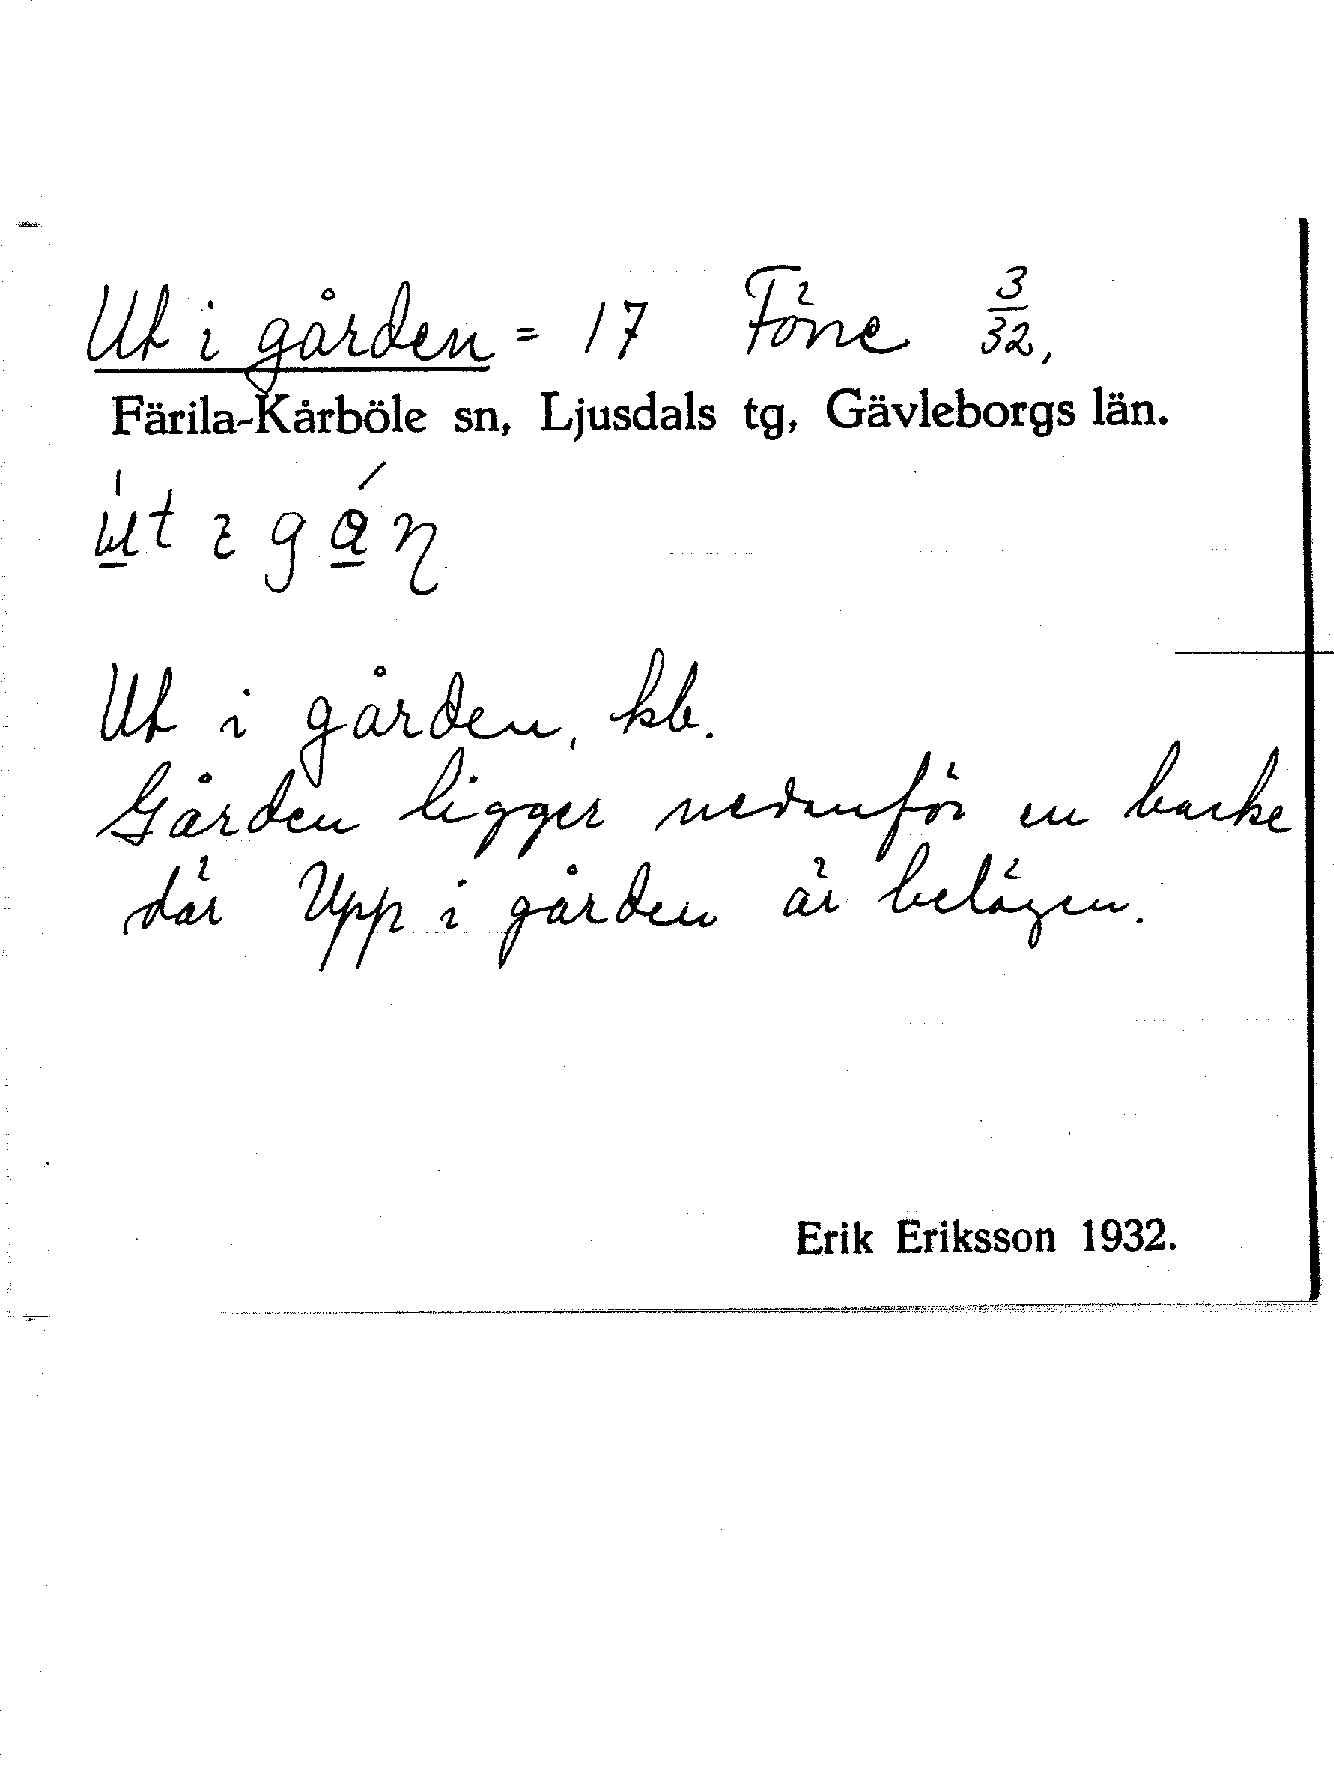 Ut i gården = 17 Föne 3/32,
Färila-Kårböle sn, Ljusdals tg, Gävleborgs län.
Ut i gården, kb.
Gården ligger nedanför en backe
där Upp i gården är belägen.
Erik Eriksson 1932.